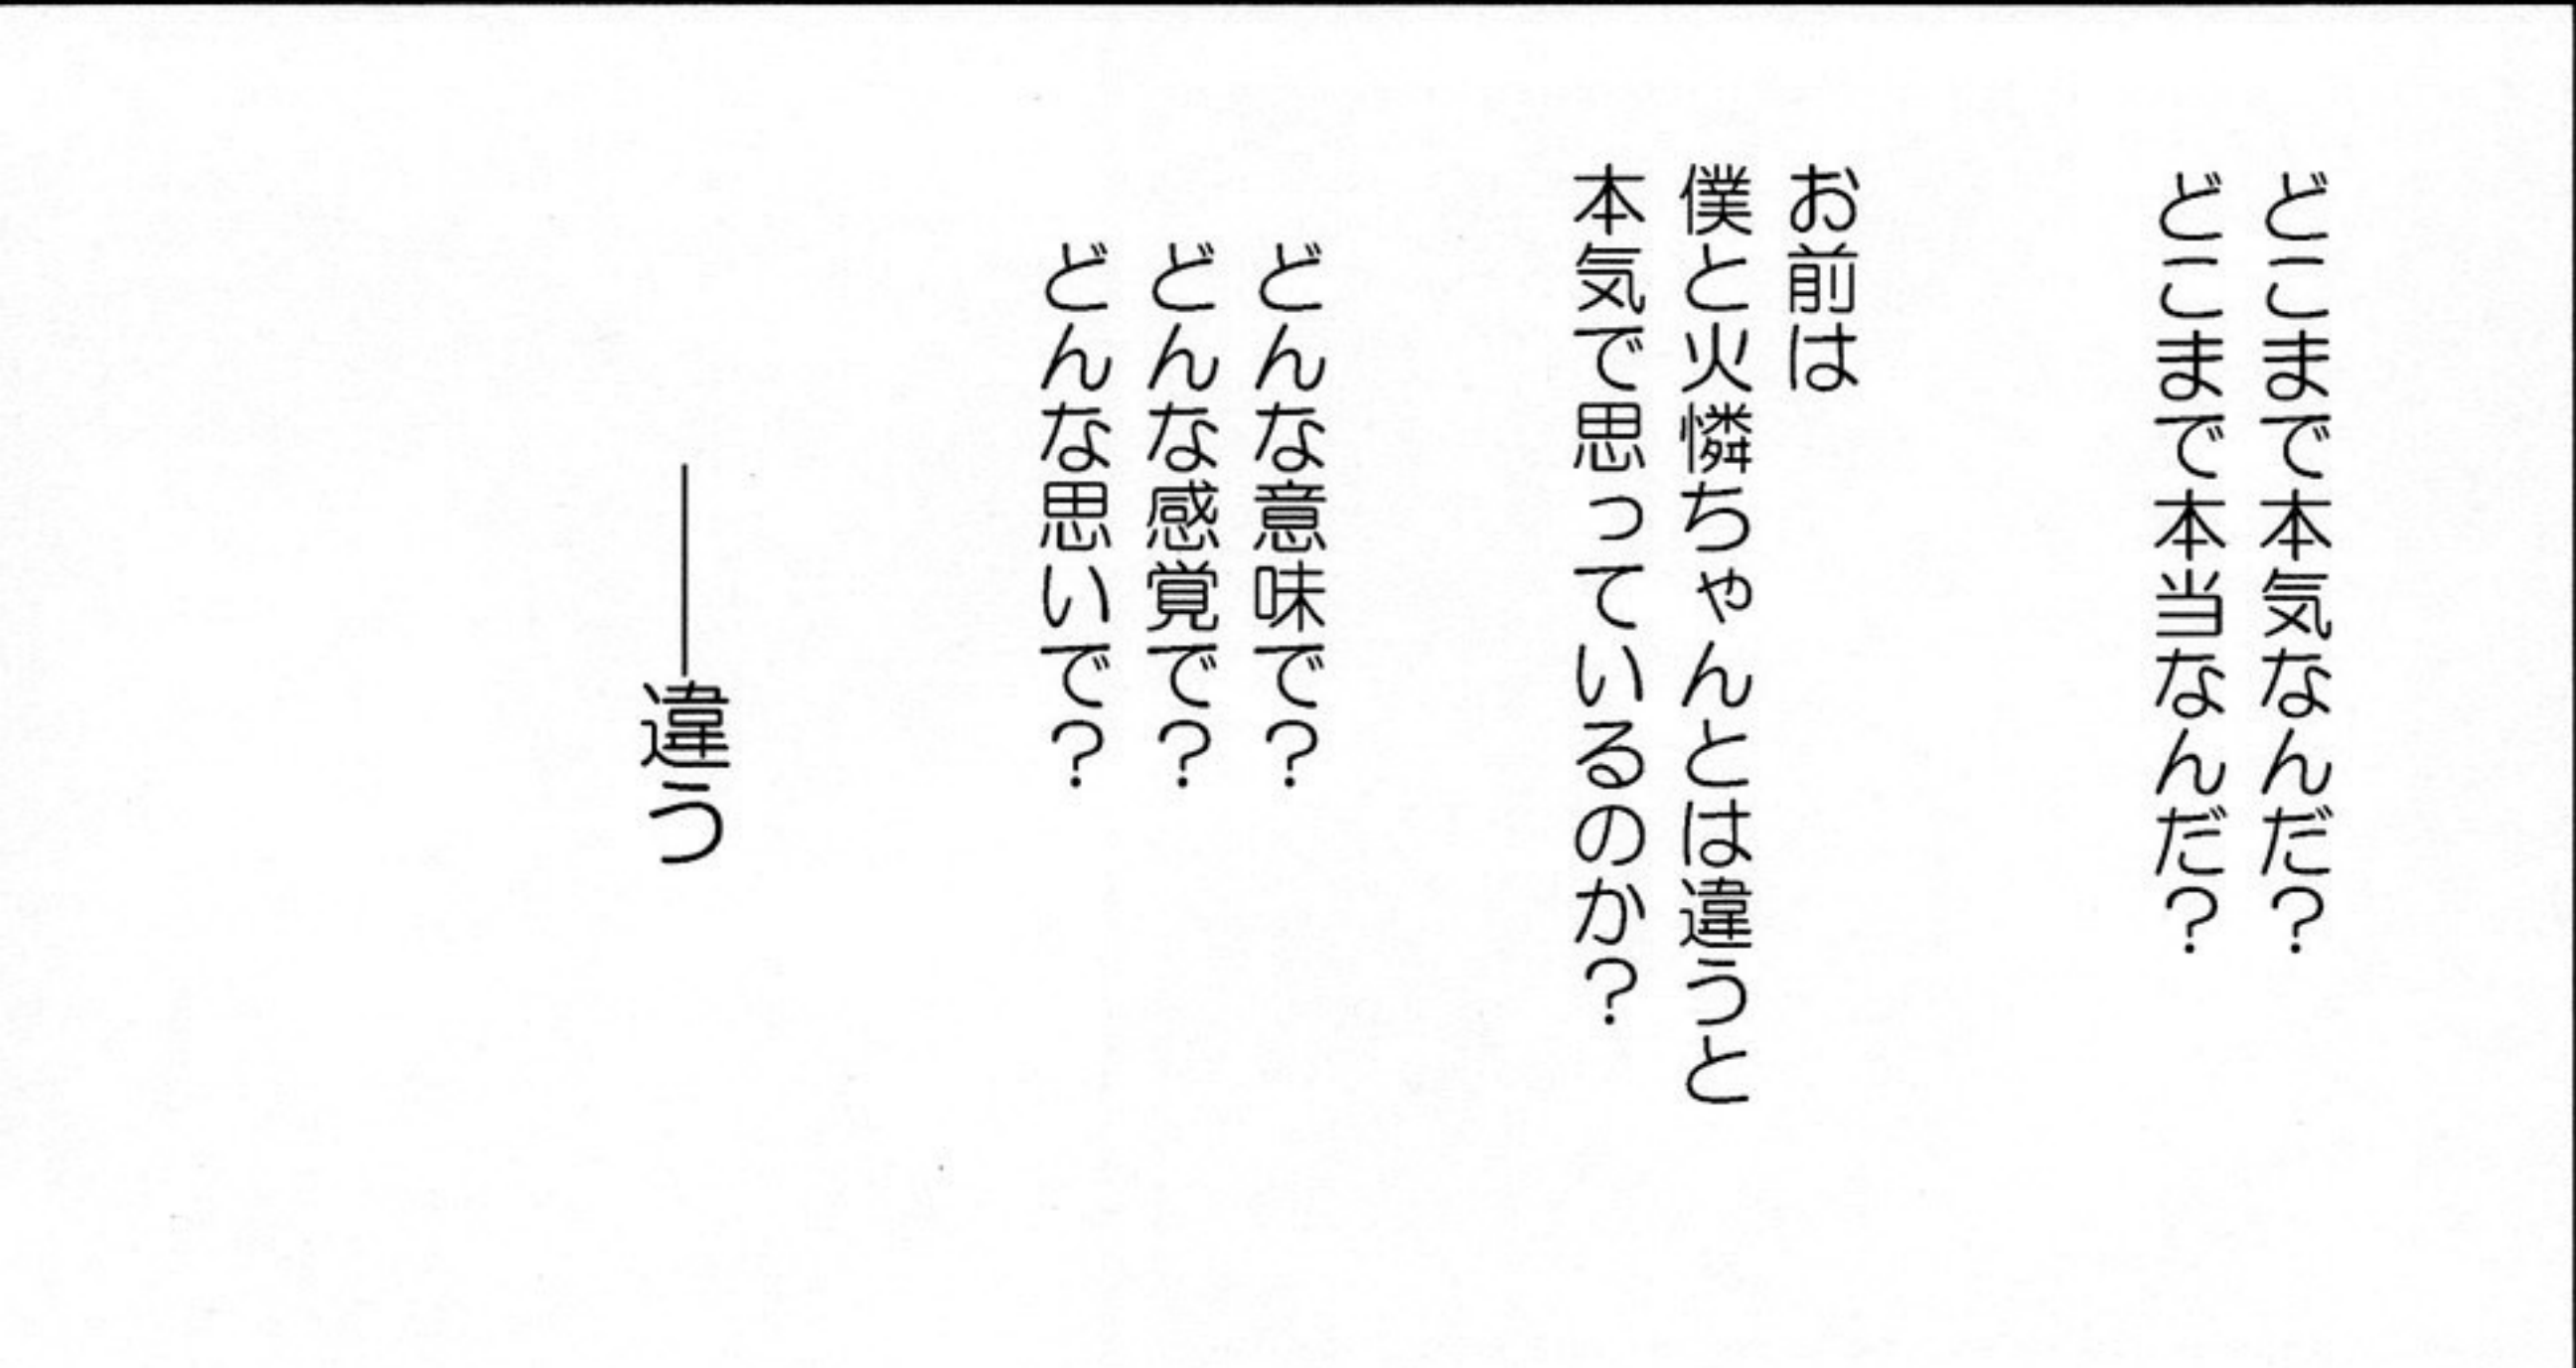 どこまで本気なんだ？
どこまで本当なんだ？
お前は
僕と火憐ちゃんとは違うと
本気で思っているのか？
どんな意味で？
どんな感覚で？
どんな思いで？
――違う